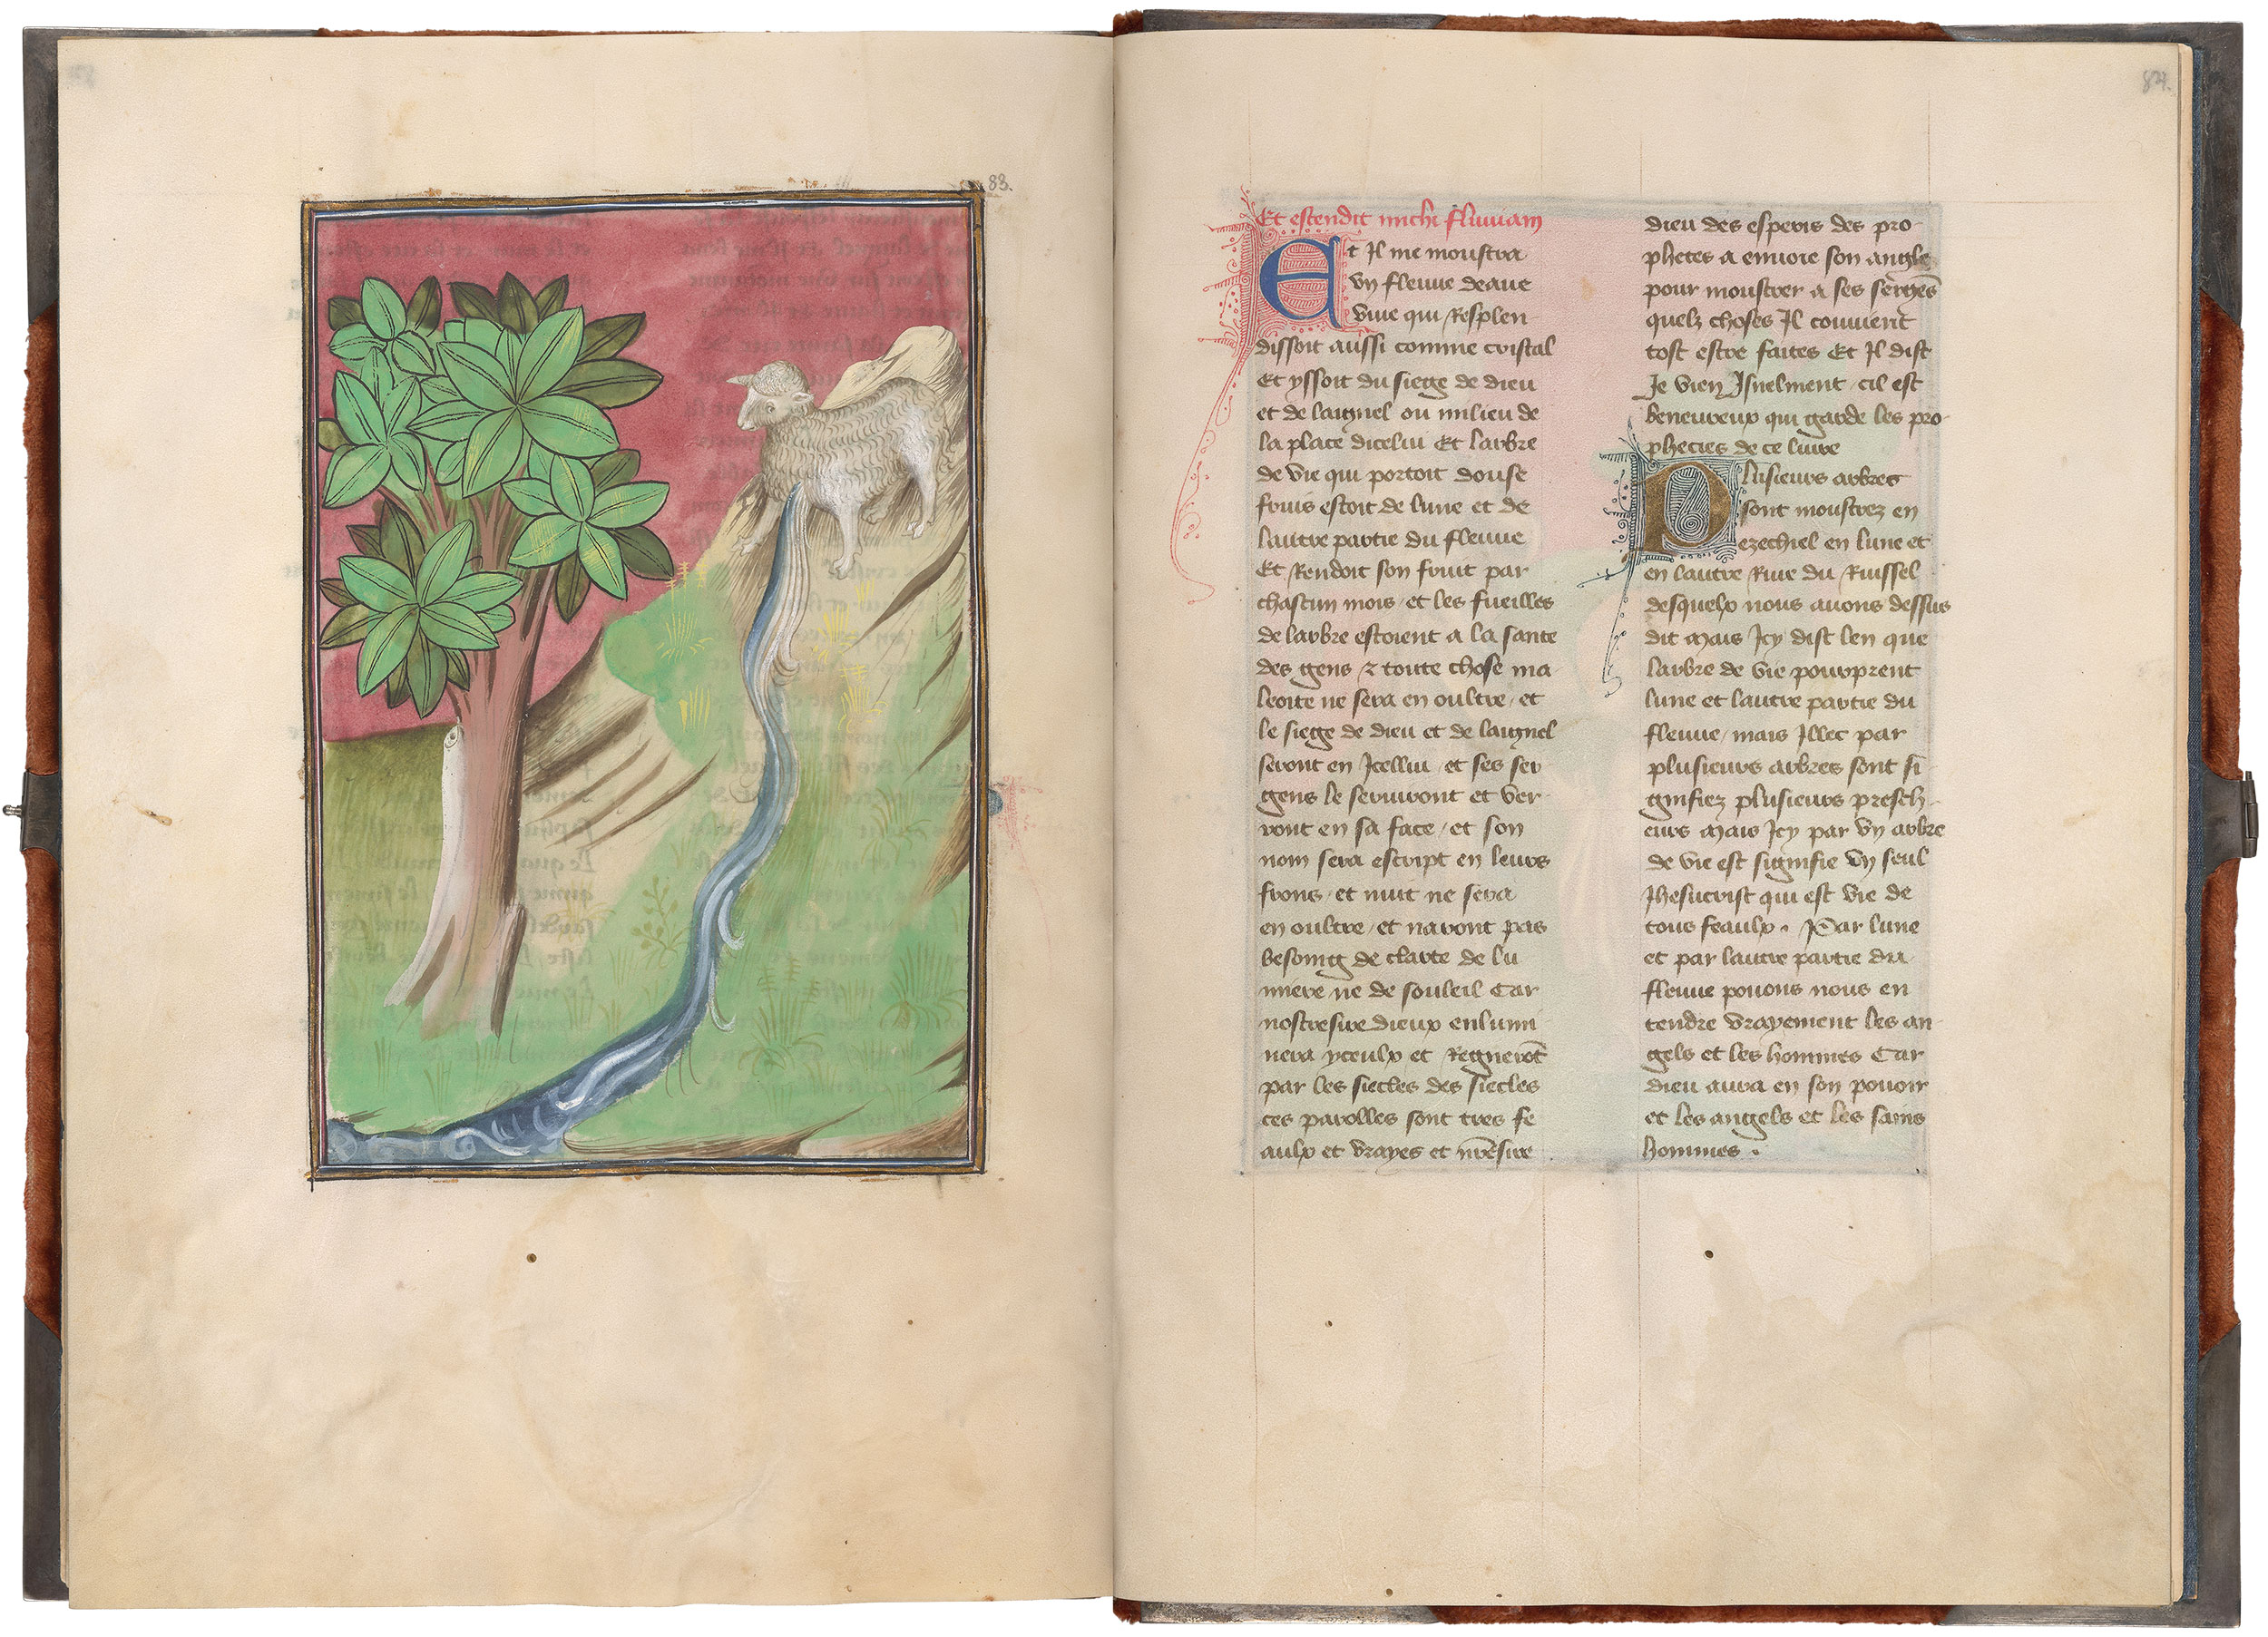 83.
84.
Et ostendit michi fluuiam
Et Il me monstra
vn fleuue deaue
viue qui Resplen
dissoit aussi comme cristal
Et yssoit du siege de dieu
et de laignel ou milieu de
la place dicelui Et larbre
de vie qui portoit douse
fruis estoit de lune et de
lautre partie du fleuue
Et Rendoit son fruit par
chascun mois / et les fueilles
de larbre estoient a la sante
des gens ⁊ toute chose ma
leoite ne sera en oultre / et
le siege de dieu et de laignel
seront en Icellui / et ses ser
gens le seruiront et ver
ront en sa face / et son
nom sera escript en leurs
frons / et nuit ne sera
en oultre / et naront pas
besoing de clarte de lu
miere ne de souleil Car
nostresire dieux enlumi
nera yceulx et Regnerōt
par les siecles des siecles
ces parolles sont tres fe
aulx et vrayes et nr̄esire
dieu des esperis des pro
phetes a enuoie son angle
pour monstrer a ses sergēs
quelz choses Il conuient
tost estre faites Et Il dist
Je vien Isnelment / cil est
beneureux qui garde les pro
phecies de ce liure
Plusieurs arbres
sont monstrez en
ezechiel en lune et
en lautre Riue du Ruissel
desquelx nous auons dessus
dit Mais Icy dist len que
larbre de vie pourprent
lune et lautre partie du
fleuue / mais Illec par
plusieurs arbres sont si
gnifiez plusieurs presch
eurs Mais Icy par vn arbre
de vie est signifie vn seul
Jhesucrist qui est vie de
tous feaulx . Par lune
et par lautre partie du
fleuue pouons nous en
tendre vrayement les an
gels et les hommes Car
dieu aura en son pouoir
et les angels et les sains
hommes .